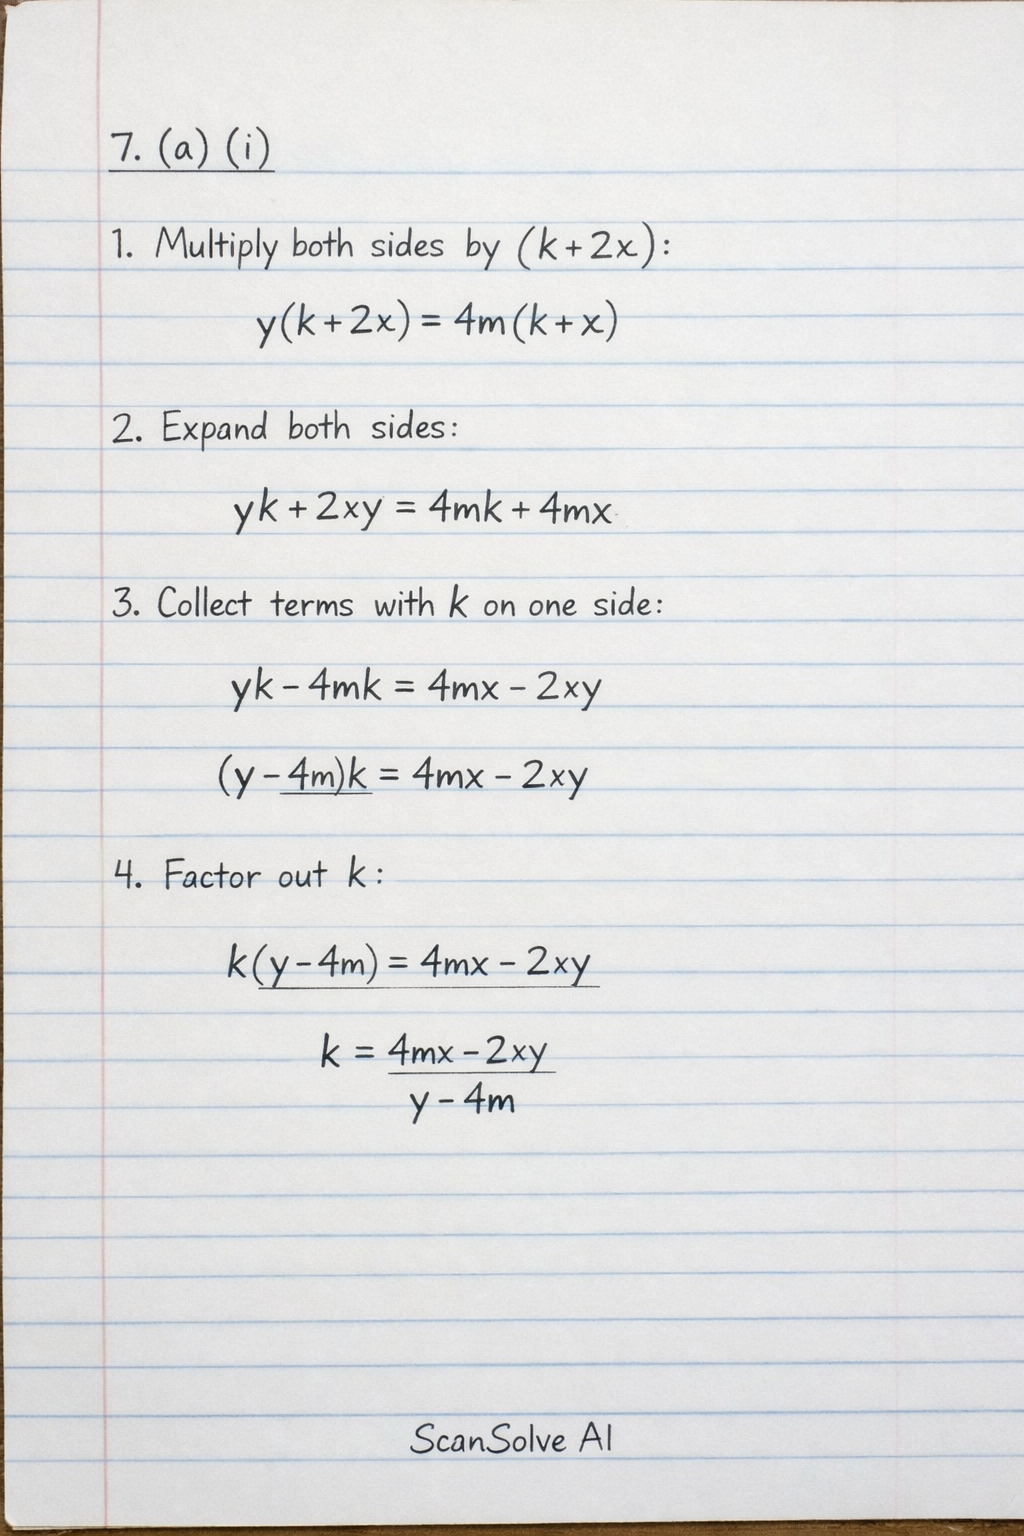 7. (a) (i)
1. Multiply both sides by (k+2x):
y(k+2x) = 4m(k+x)
2. Expand both sides:
yk + 2xy = 4mk + 4mx
3. Collect terms with k on one side:
yk - 4mk = 4mx - 2xy
(y - 4m)k = 4mx - 2xy
4. Factor out k:
k(y-4m) = 4mx - 2xy
k = 4mx - 2xy
y - 4m
ScanSolve AI